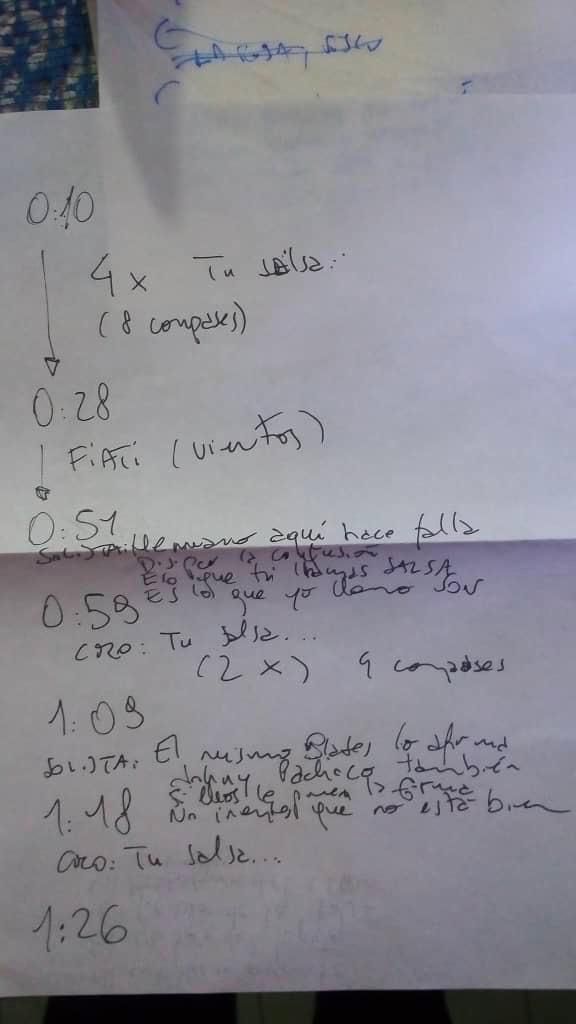 0:10
4x Tu salsa...
(8 compases)
0:28
FiATi (vientos)
0:51
SOLISTA: Hermano aquí hace falla
Disipar la confusión
Eso que tú llamas SALSA
Es lo que yo llamo SON
0:59
CORO: Tu salsa...
(2 x) 4 compases
1:09
SOLISTA: El mismo Blades lo afirma
Johnny Pacheco también
1:18
No que no está bien
CORO: Tu salsa...
1:26